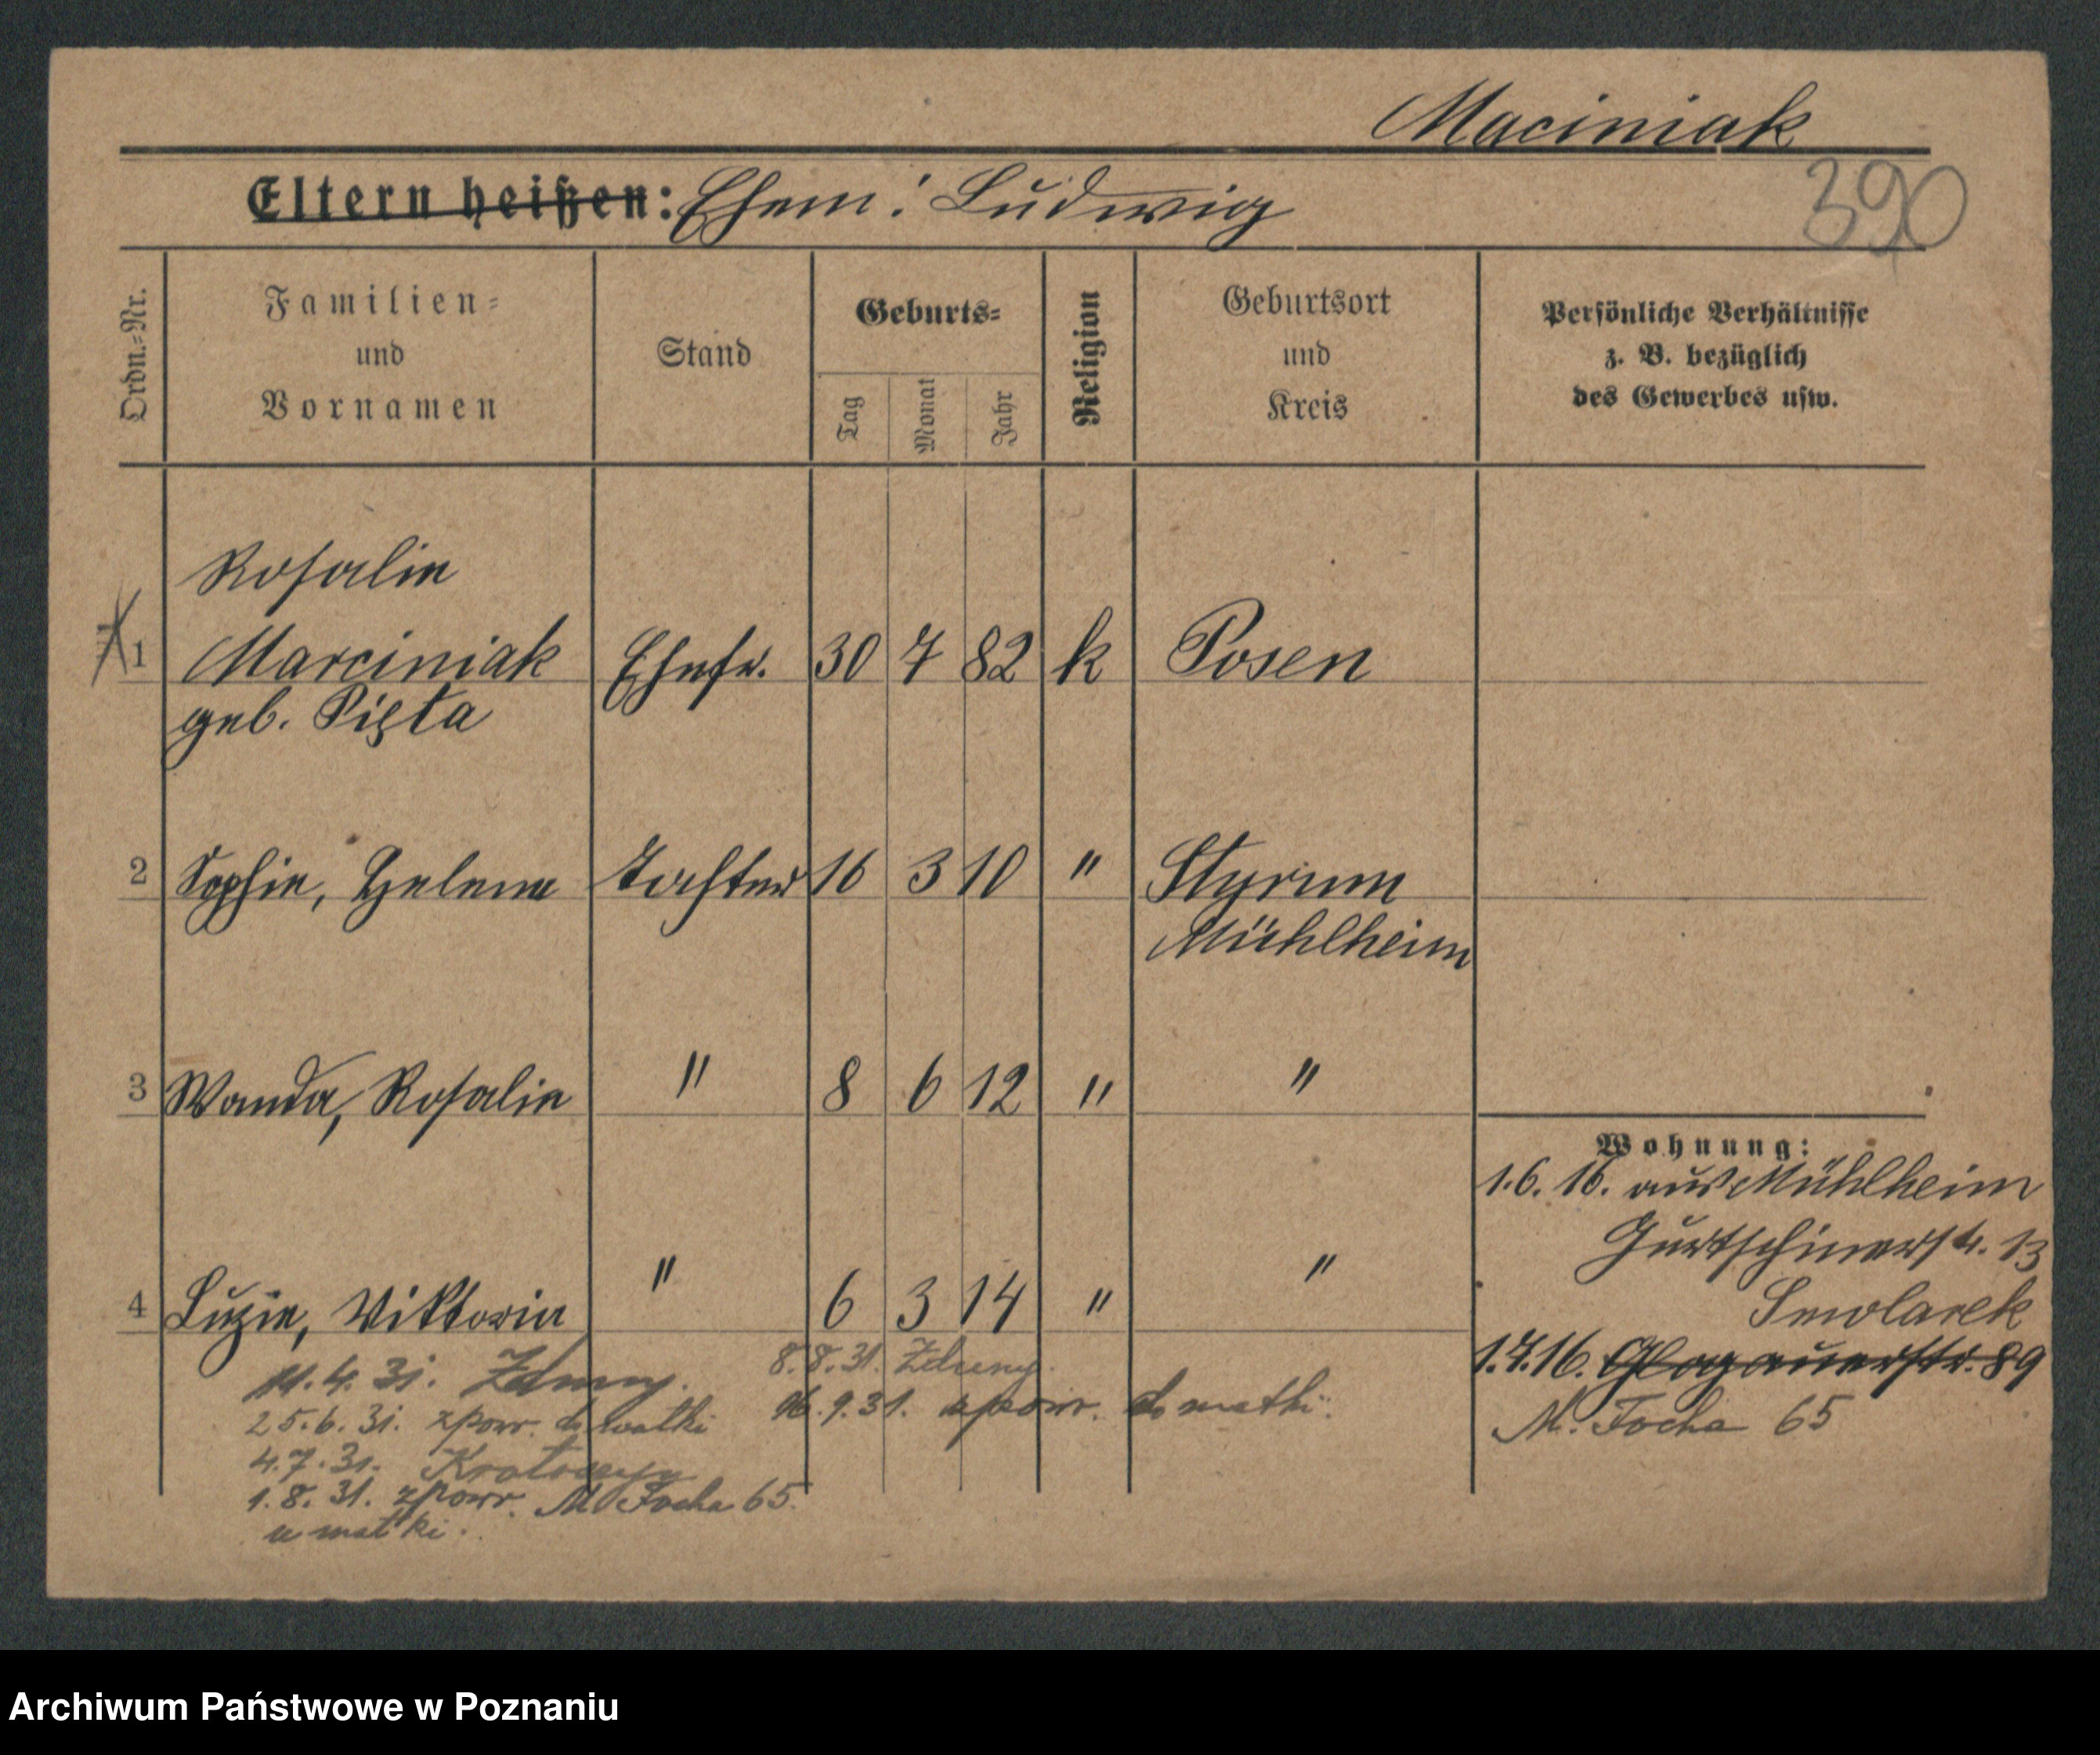 Maciniak
Eltern heißen: Ehem: Ludwig
390
Ordn.-Nr.
Familien-
und
Vornamen
Stand
Geburts-
Tag
Monat
Jahr
Religion
Geburtsort
und
Kreis
Persönliche Verhältnisse
z. B. bezüglich
des Gewerbes usw.
Rosalie
1 Marciniak Ehefr. 30 7 82 k Posen
geb. Pięta
2 Sophie, Helene Tochter 16 3 10 " Styrum
Mühlheim
3 Wanda, Rosalie " 8 6 12 " "
Wohnung:
1.6.16. aus Mühlheim
Gurtschinerstr. 13
Smolarek
4 Luzie, Viktoria " 6 3 14 " "
1.7.16. Glogauerstr. 89
M. Focha 65
11.4.31.
25.6.31. zpowr. do matki
4.7.31. Krotoszyn
1.8.31. zpowr. M. Focha 65.
u matki.
8.8.31.
16.9.31. zpowr. do matki.
Archiwum Państwowe w Poznaniu